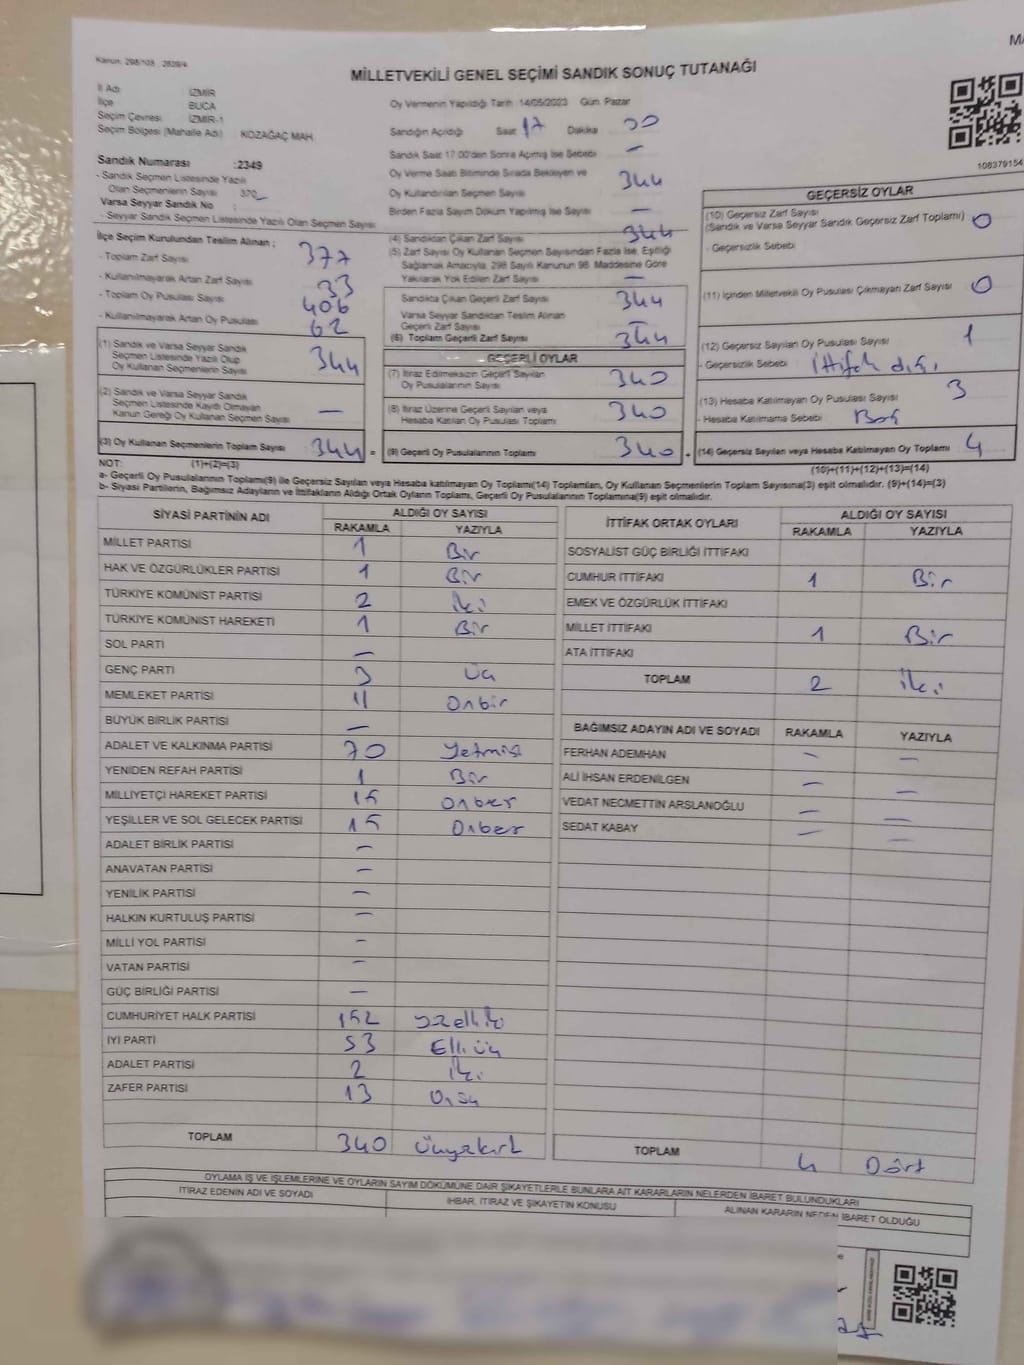 Kanun: 298/105 , 2839/4
MİLLETVEKİLİ GENEL SEÇİMİ SANDIK SONUÇ TUTANAĞI
İl Adı İZMİR
İlçe BUCA
Seçim Çevresi İZMİR-1
Seçim Bölgesi (Mahalle Adı) KOZAĞAÇ MAH.
Sandık Numarası :2349
- Sandık Seçmen Listesinde Yazılı
Olan Seçmenlerin Sayısı 370
Varsa Seyyar Sandık No :
- Seyyar Sandık Seçmen Listesinde Yazılı Olan Seçmen Sayısı
Oy Vermenin Yapıldığı Tarih 14/05/2023 Gün. Pazar
Sandığın Açıldığı Saat 17 Dakika
Sandık Saat 17.00'den Sonra Açılmış İse Sebebi —
Oy Verme Saati Bitiminde Sırada Bekleyen ve
Oy Kullandırılan Seçmen Sayısı 344
Birden Fazla Sayım Döküm Yapılmış İse Sayısı —
108379154
İlçe Seçim Kurulundan Teslim Alınan ;
- Toplam Zarf Sayısı 377
- Kullanılmayarak Artan Zarf Sayısı 33
- Toplam Oy Pusulası Sayısı 406
- Kullanılmayarak Artan Oy Pusulası 62
(1) Sandık ve Varsa Seyyar Sandık
Seçmen Listesinde Yazılı Olup
Oy Kullanan Seçmenlerin Sayısı 344
(2) Sandık ve Varsa Seyyar Sandık
Seçmen Listesinde Kaydı Olmayan
Kanun Gereği Oy Kullanan Seçmen Sayısı —
(3) Oy Kullanan Seçmenlerin Toplam Sayısı 344 =
(4) Sandıktan Çıkan Zarf Sayısı 344
(5) Zarf Sayısı Oy Kullanan Seçmen Sayısından Fazla İse, Eşitliği
Sağlamak Amacıyla, 298 Sayılı Kanunun 98. Maddesine Göre
Yakılarak Yok Edilen Zarf Sayısı —
Sandıkta Çıkan Geçerli Zarf Sayısı 344
Varsa Seyyar Sandıktan Teslim Alınan
Geçerli Zarf Sayısı —
(6) Toplam Geçerli Zarf Sayısı 344
GEÇERLİ OYLAR
(7) İtiraz Edilmeksizin Geçerli Sayılan
Oy Pusulalarının Sayısı 340
(8) İtiraz Üzerine Geçerli Sayılan veya
Hesaba Katılan Oy Pusulası Toplamı 340
(9) Geçerli Oy Pusulalarının Toplamı 340 +
GEÇERSİZ OYLAR
(10) Geçersiz Zarf Sayısı
(Sandık ve Varsa Seyyar Sandık Geçersiz Zarf Toplamı) 0
- Geçersizlik Sebebi
(11) İçinden Milletvekili Oy Pusulası Çıkmayan Zarf Sayısı 0
(12) Geçersiz Sayılan Oy Pusulası Sayısı 1
- Geçersizlik Sebebi İttifak dışı
(13) Hesaba Katılmayan Oy Pusulası Sayısı 3
- Hesaba Katılmama Sebebi Boş
(14) Geçersiz Sayılan veya Hesaba Katılmayan Oy Toplamı 4
NOT: (1)+(2)=(3) (10)+(11)+(12)+(13)=(14)
a- Geçerli Oy Pusulalarının Toplamı(9) ile Geçersiz Sayılan veya Hesaba katılmayan Oy Toplamı(14) Toplamları, Oy Kullanan Seçmenlerin Toplam Sayısına(3) eşit olmalıdır. (9)+(14)=(3)
b- Siyasi Partilerin, Bağımsız Adayların ve İttifakların Aldığı Ortak Oyların Toplamı, Geçerli Oy Pusulalarının Toplamına(9) eşit olmalıdır.
SİYASİ PARTİNİN ADI ALDIĞI OY SAYISI
RAKAMLA YAZIYLA
MİLLET PARTİSİ 1 Bir
HAK VE ÖZGÜRLÜKLER PARTİSİ 1 Bir
TÜRKİYE KOMÜNİST PARTİSİ 2 iki
TÜRKİYE KOMÜNİST HAREKETİ 1 Bir
SOL PARTİ —
GENÇ PARTİ 3 Üç
MEMLEKET PARTİSİ 11 Onbir
BÜYÜK BİRLİK PARTİSİ —
ADALET VE KALKINMA PARTİSİ 70 Yetmiş
YENİDEN REFAH PARTİSİ 1 Bir
MİLLİYETÇİ HAREKET PARTİSİ 15 Onbeş
YEŞİLLER VE SOL GELECEK PARTİSİ 15 Onbeş
ADALET BİRLİK PARTİSİ —
ANAVATAN PARTİSİ —
YENİLİK PARTİSİ —
HALKIN KURTULUŞ PARTİSİ —
MİLLİ YOL PARTİSİ -
VATAN PARTİSİ -
GÜÇ BİRLİĞİ PARTİSİ —
CUMHURİYET HALK PARTİSİ 152 yzelliki
İYİ PARTİ 53 Elliüç
ADALET PARTİSİ 2 iki
ZAFER PARTİSİ 13 Onüç
TOPLAM 340 Üçyzkırk
İTTİFAK ORTAK OYLARI ALDIĞI OY SAYISI
RAKAMLA YAZIYLA
SOSYALİST GÜÇ BİRLİĞİ İTTİFAKI
CUMHUR İTTİFAKI 1 Bir
EMEK VE ÖZGÜRLÜK İTTİFAKI
MİLLET İTTİFAKI 1 Bir
ATA İTTİFAKI
TOPLAM 2 iki
BAĞIMSIZ ADAYIN ADI VE SOYADI RAKAMLA YAZIYLA
FERHAN ADEMHAN — —
ALİ İHSAN ERDENİLGEN — —
VEDAT NECMETTİN ARSLANOĞLU — —
SEDAT KABAY — —
TOPLAM 4 Dört
OYLAMA İŞ VE İŞLEMLERİNE VE OYLARIN SAYIM DÖKÜMÜNE DAİR ŞİKAYETLERLE BUNLARA AİT KARARLARIN NELERDEN İBARET BULUNDUKLARI
İTİRAZ EDENİN ADI VE SOYADI İHBAR, İTİRAZ VE ŞİKAYETİN KONUSU ALINAN KARARIN NEDEN İBARET OLDUĞU